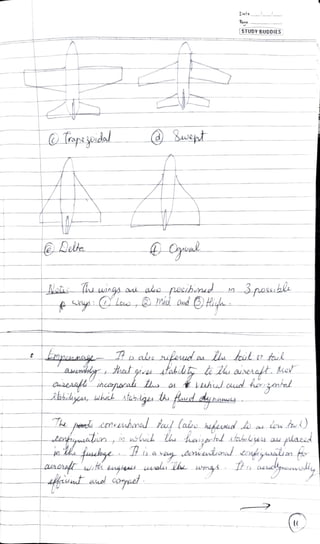 Date
Page
STUDY BUDDIES
(c) Trapezoidal (d) Swept
(e) Delta (f) Ogival
Note: The wings are also positioned in 3 possible
ways: (1) Low, (2) Mid and (3) High.
Empennage - It is also referred as the tail or tail
assembly, that gives stability to the aircraft. Most
aircraft incorporate this as vertical and horizontal
stabilizers, which stabilizes the fluid dynamics.
The conventional tail (also referred to as low tail)
configuration, in which the horizontal stabilizers are placed
in the fuselage. It is a conventional configuration for
aircraft with engines under the wings. It is aerodynamically
efficient and compact.
11